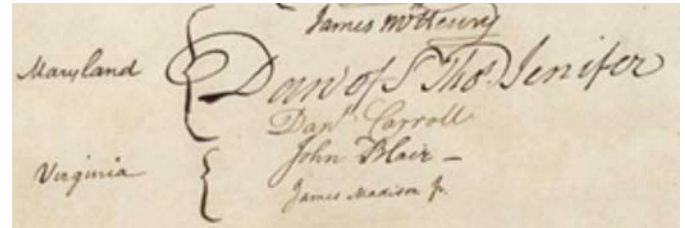 James McHenry
Maryland
Dan of St Thos. Jenifer
Danl Carroll
John Blair –
Virginia
James Madison Jr.